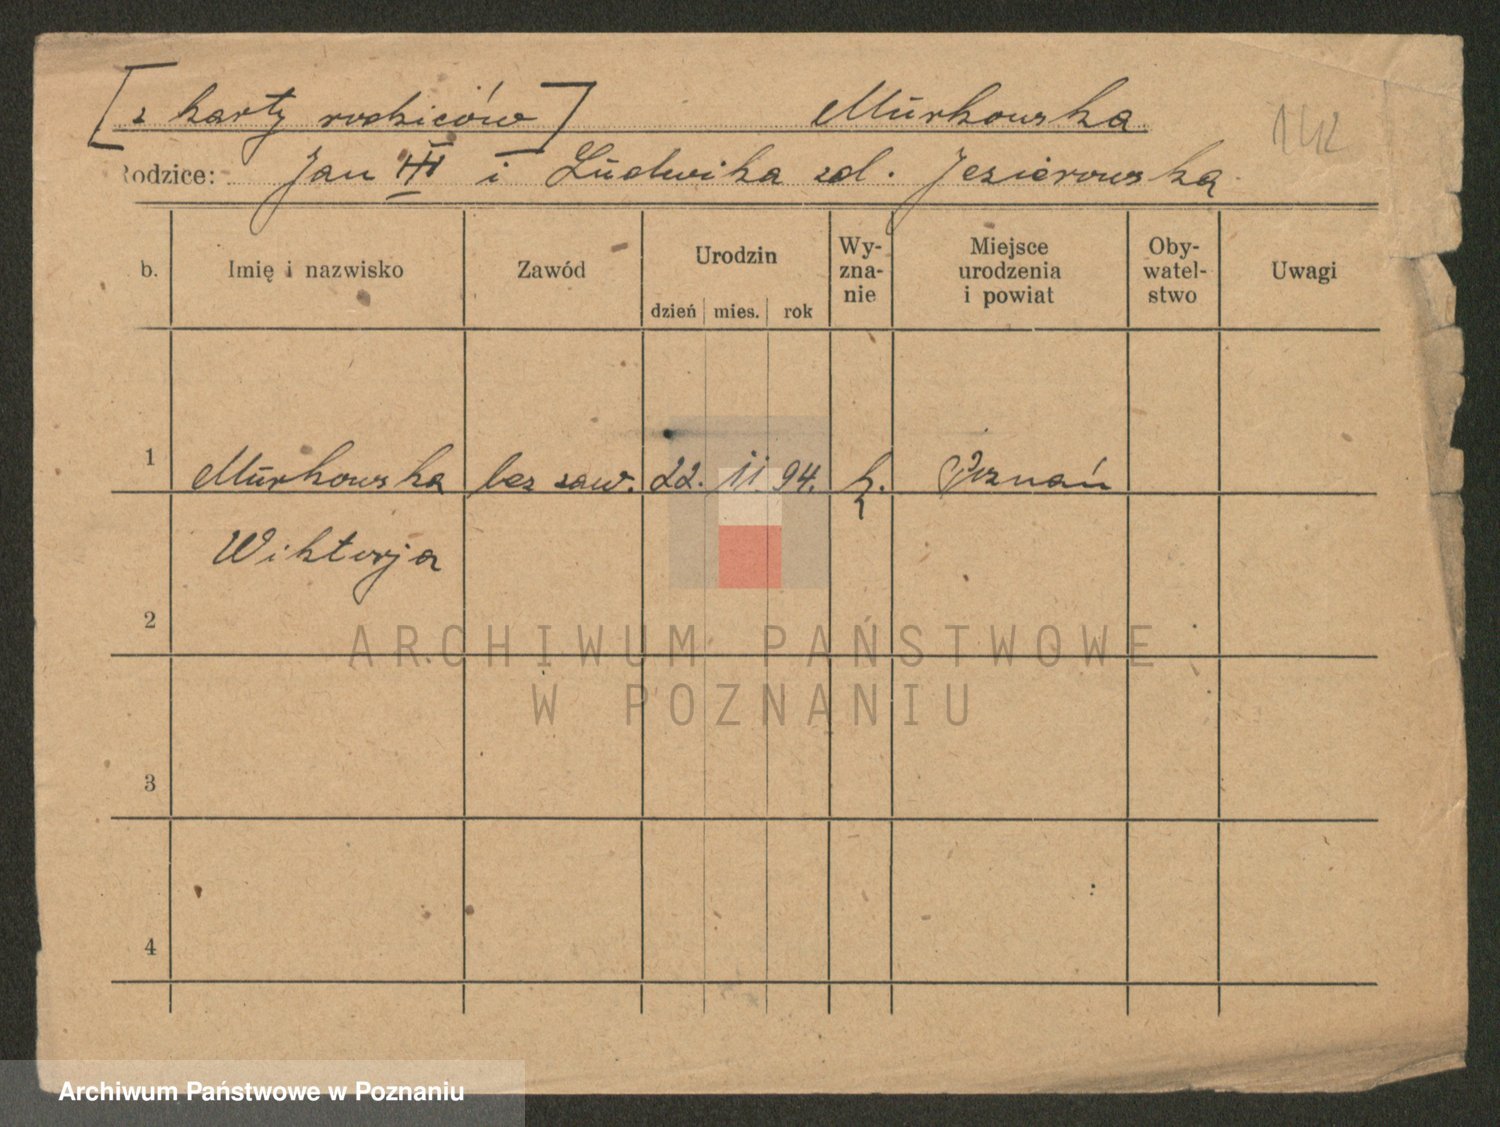 [z karty rodziców] Murkowska
142
Rodzice: Jan III i Ludwika zd. Jezierowską
b. Imię i nazwisko Zawód Urodzin dzień mies. rok Wy-zna-nie Miejsce urodzenia i powiat Oby-watel-stwo Uwagi
1 Murkowska bez zaw. 22. 11. 94. k. Poznań
Wiktorja
2
ARCHIWUM PAŃSTWOWE
W POZNANIU
3
4
Archiwum Państwowe w Poznaniu